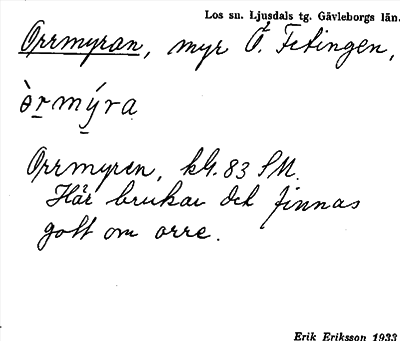 Los sn. Ljusdals tg. Gävleborgs län.
Orrmyran, myr Ö. Fetingen,
òr̲mý̲ra
Orrmyren, kbl. 83 SM.
Här brukar det finnas
gott om orre.
Erik Eriksson 1933